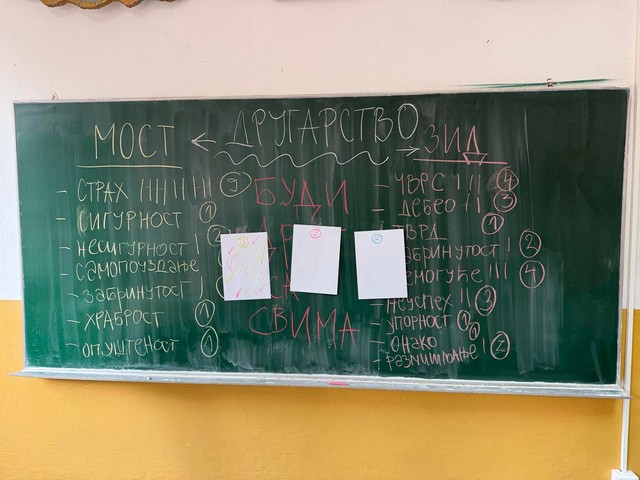 ДРУГАРСТВО
МОСТ
- СТРАХ |||||||| 9
- СИГУРНОСТ 1
- НЕСИГУРНОСТ |
- САМОПОУЗДАЊЕ
- ЗАБРИНУТОСТ |
- ХРАБРОСТ 1
- ОПУШТЕНОСТ 1
БУДИ
СВИМА
2
2
2
ЗИД
- ЧВРС ||| 4
- ДЕБЕО || 3
ТВРД 1
АБРИНУТОСТ | 2
ЕМОГУЋЕ ||| 4
НЕУСПЕХ || 3
- УПОРНОСТ 1
- ОНАКО
- РАЗМИШЉАЊЕ | 2